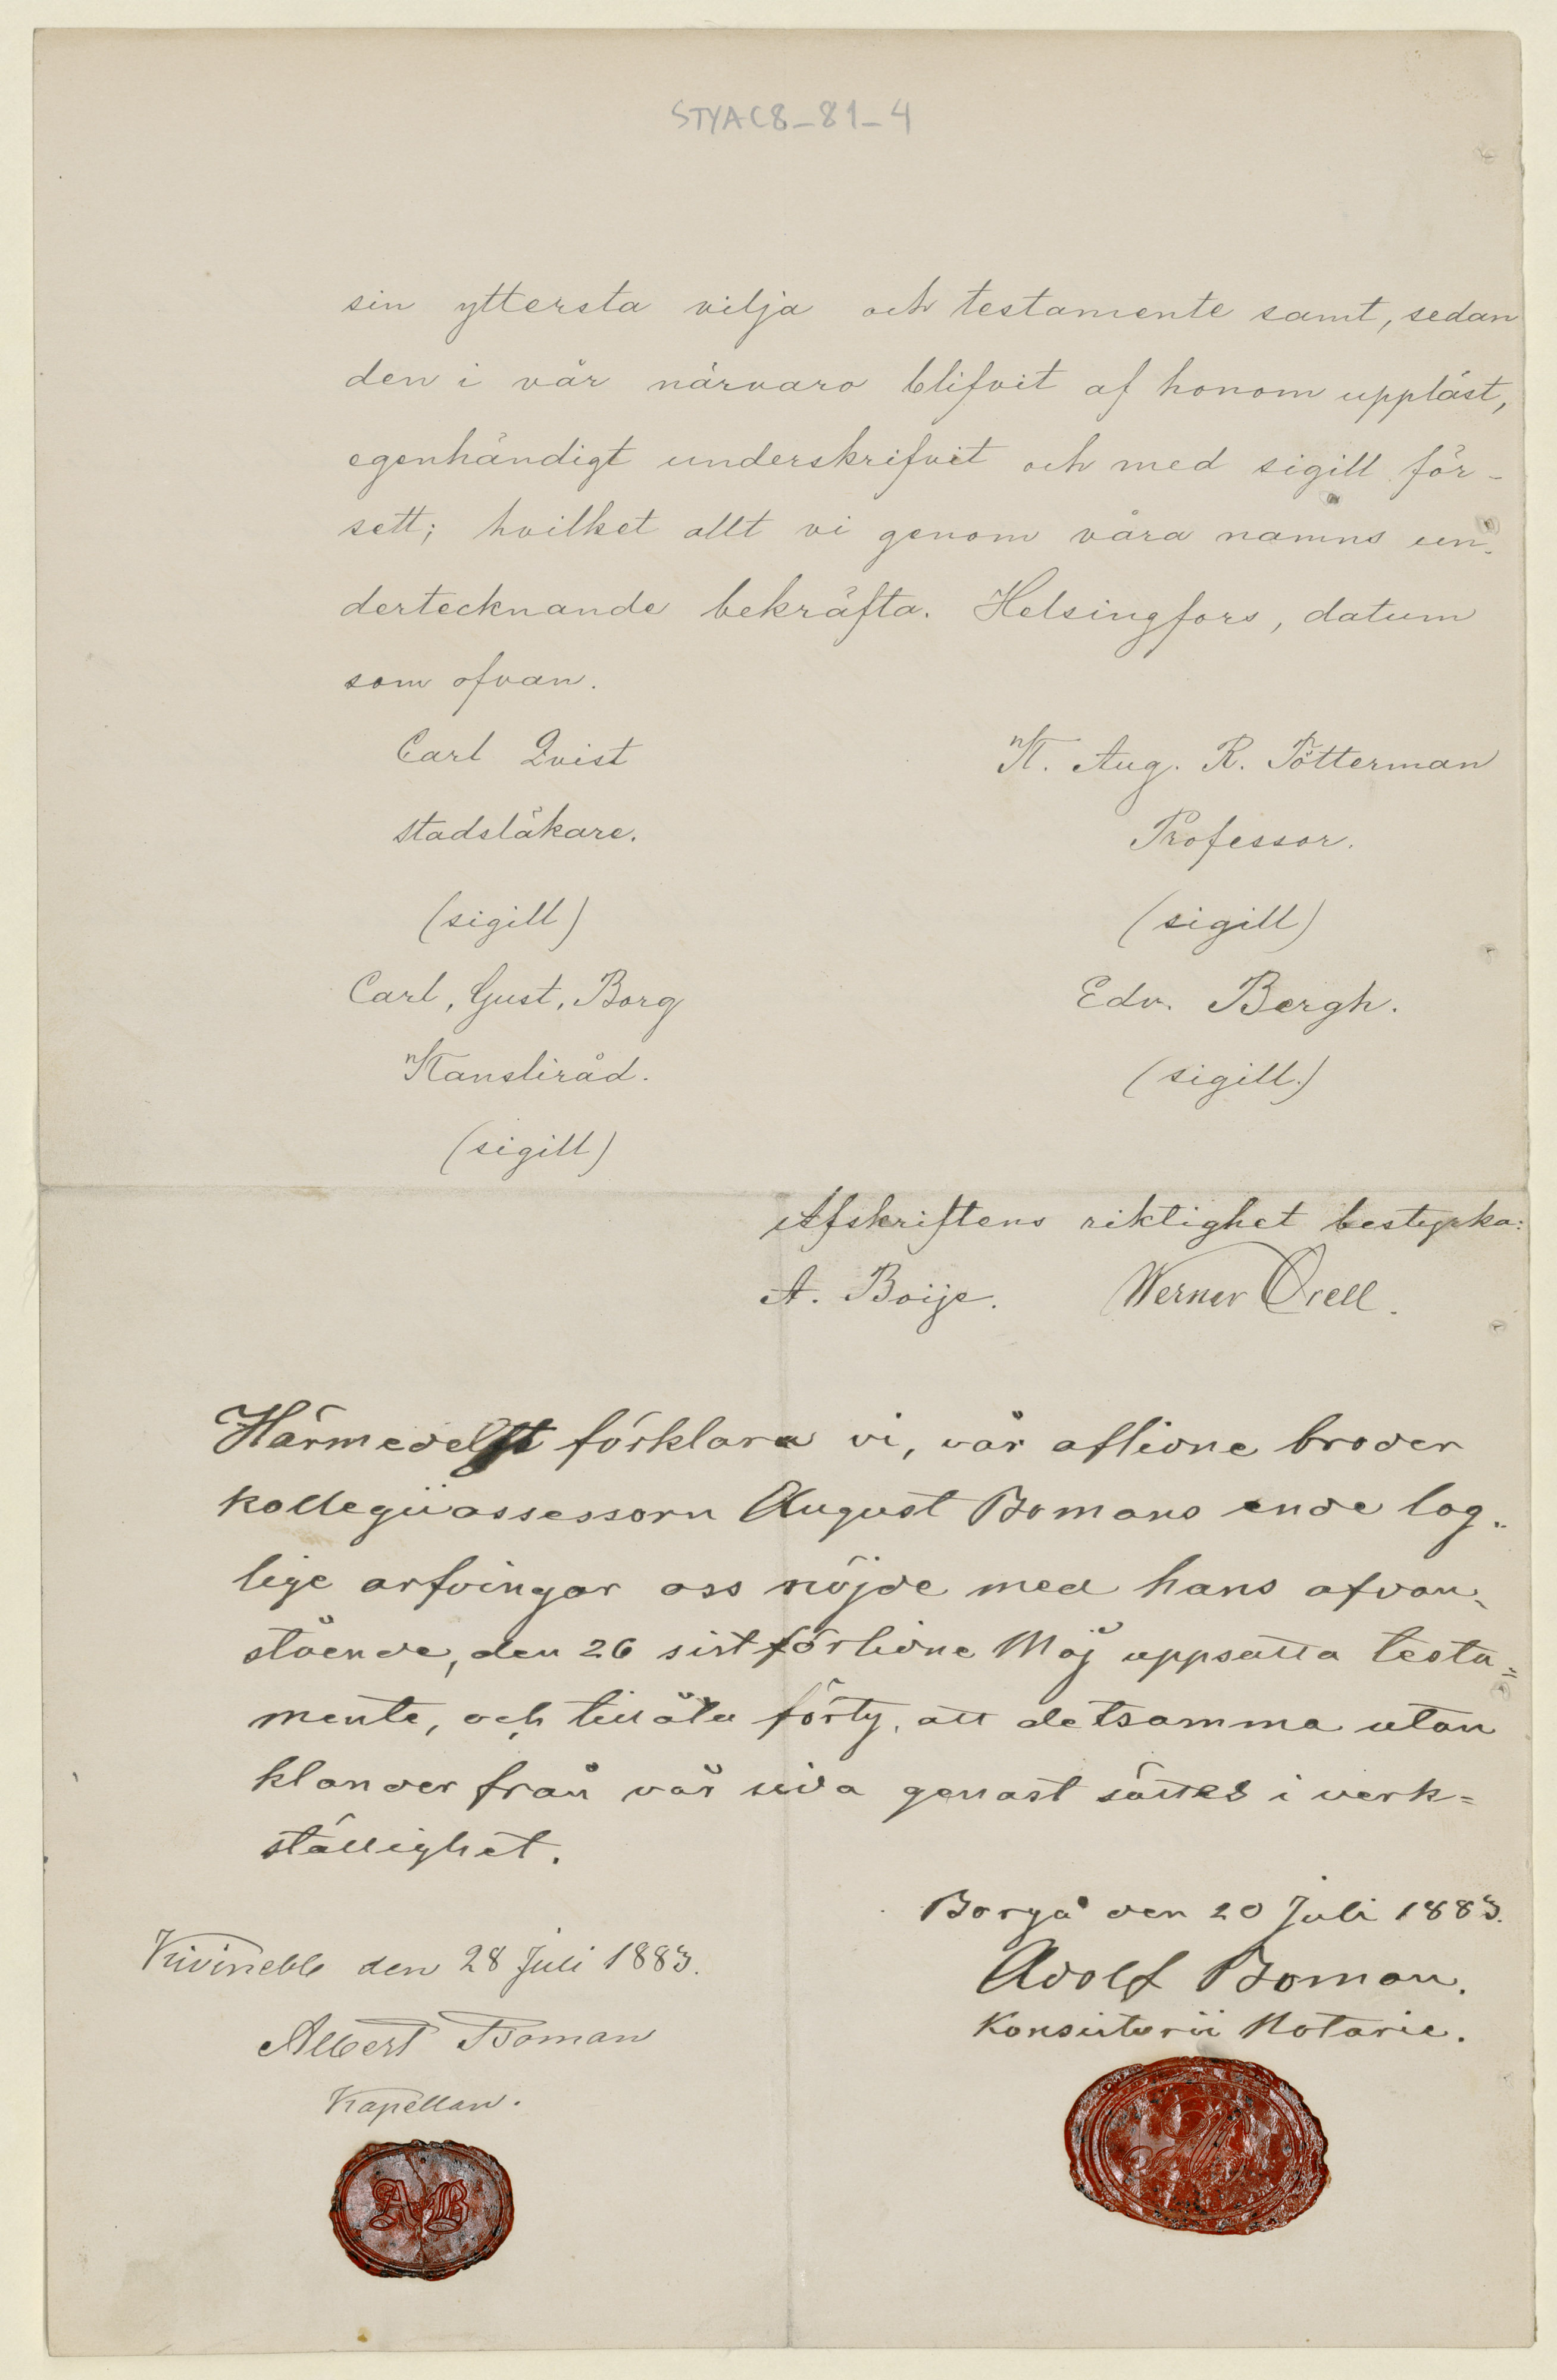 STYAC8_81_4
sin yttersta vilja och testamente samt, sedan
den i vår närvaro blifvit af honom uppläst,
egenhändigt underskrifvit och med sigill för-
sett; hvilket allt vi genom våra namns un-
dertecknande bekräfta. Helsingfors, datum
som ofvan.
Carl Qvist
stadsläkare.
(sigill)
K. Aug. R. Tötterman
Professor.
(sigill)
Carl, Gust, Borg
Kansliråd.
(sigill)
Edv. Bergh.
(sigill.)
Afskriftens riktighet bestyrka:
A. Boije. Werner Orell.
Härmedelst förklara vi, vår aflidne broder
kollegiiassessorn August Bomans ende lag-
lige arfvingar oss nöjde med hans ofvan-
stående, den 26 sistförlidne Maj uppsatta testa=
mente, och tillåta förty, att detsamma utan
klander från vår sida genast sättes i verk=
ställighet.
Borgå den 20 Juli 1883.
Adolf Boman.
Konsistorii Notarie.
Kivinebb den 28 Juli 1883.
Albert Boman
Kapellan.
AB